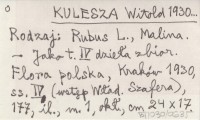 KULESZA Witold 1930...
Rodzaj: Rubus L., Malina.
— Jako t. IV dzieła zbior.
Flora polska, Kraków 1930,
ss. IV (wstęp Wład. Szafera),
177, il., m. 1, okł., cm 24 x 17